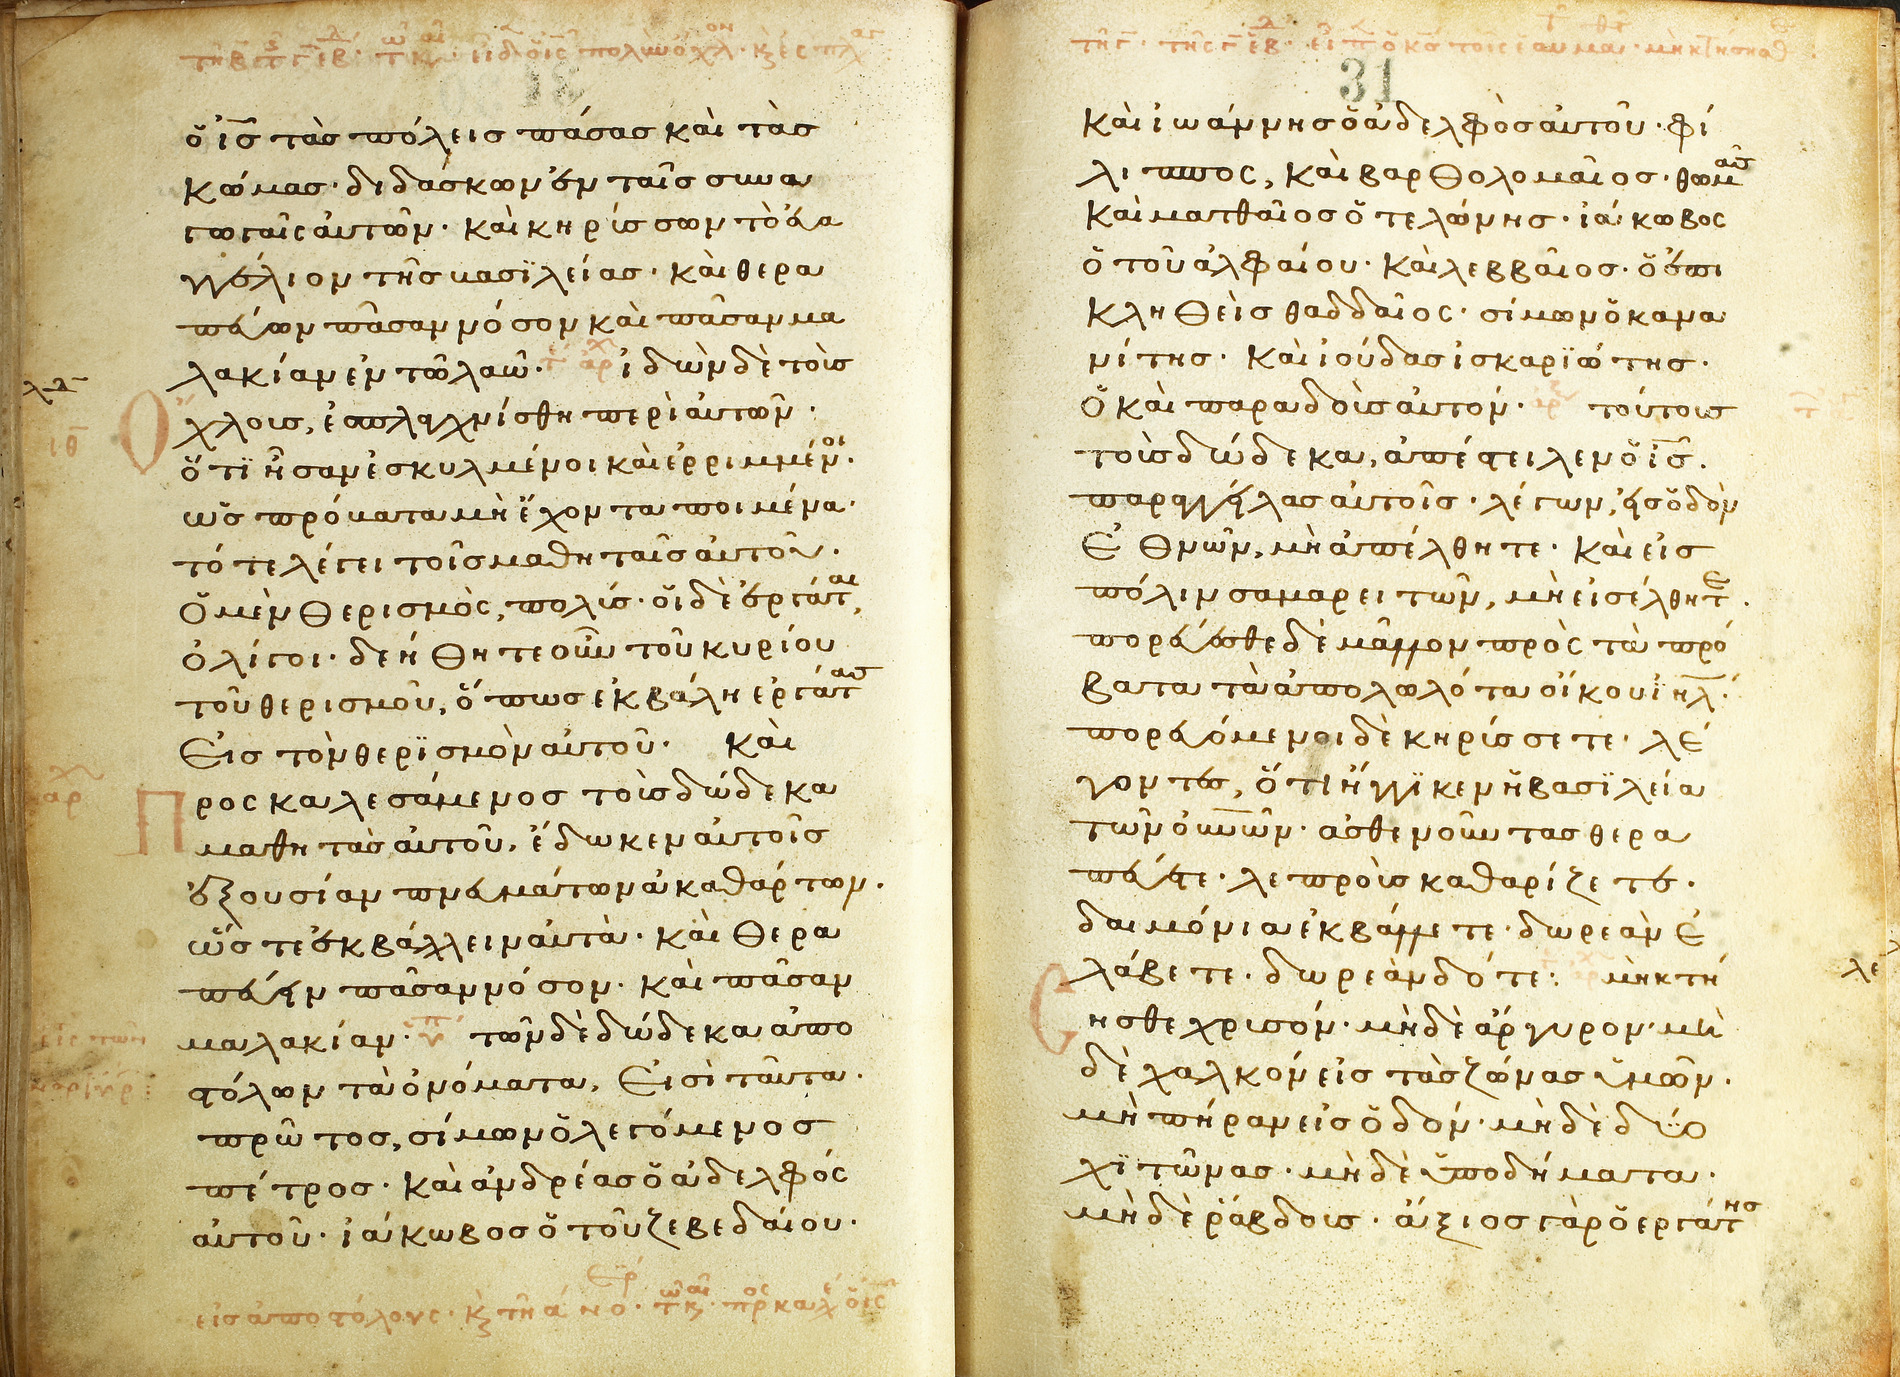 ὁ ἰς̅ τὰσ πόλεισ πάσασ καὶ τὰσ
κώμασ· διδάσκων ἐν ταῖσ συνα
γωγαῖς αὐτῶν· καὶ κηρύσσων τὸ εὐα
γγέλιον τῆσ βασϊλείασ· καὶ θερα
πεύων πᾶσαν νόσον καὶ πᾶσαν μα
λακίαν ἐν τῶ λαῶ· ἰδὼν δὲ τοὺσ
Ὄχλουσ, ἐσπλαγχνίσθη περὶ αὐτῶν·
ὅτϊ ἦσαν ἐσκυλμένοι καὶ ἐρριμμένοι·
ὡσ πρόβατα μὴ ἔχοντα ποιμένα·
τότε λέγει τοῖσ μαθηταῖσ αὐτοῦ·
ὁ μὲν θερισμὸς, πολύσ· οἱ δὲ ἐργάται,
ὀλίγοι· δεήθητε οὖν τοῦ κυρίου
τοῦ θερισμοῦ, ὅπωσ ἐκβάλη ἐργάτασ
εἰσ τὸν θερϊσμὸν αὐτοῦ· καὶ
Προσκαλεσάμενοσ τοὺσ δώδεκα
μαθητὰσ αὐτοῦ, ἔδωκεν αὐτοῖσ
ἐξουσίαν πνευμάτων ἀκαθάρτων·
ὥστε ἐκβάλλειν αὐτὰ· καὶ θερα
πεύειν πᾶσαν νόσον· καὶ πᾶσαν
μαλακίαν· τῶν δὲ δώδεκα ἀπο
στόλων τὰ ὀνόματα, εἰσὶ ταῦτα·
πρῶτοσ, σίμων ὁ λεγόμενοσ
πέτροσ· καὶ ἀνδρέασ ὁ ἀδελφός
αὐτοῦ· ἰάκωβοσ ὁ τοῦ ζεβεδαίου·
31
καὶ ἰωάννησ ὁ ἀδελφὸσ αὐτοῦ· φί
λιππος, καὶ βαρθολομαῖοσ· θωμᾶσ
καὶ ματθαῖοσ ὁ τελώνησ· ἰάκωβος
ὁ τοῦ ἀλφαίου· καὶ λεββαῖοσ· ὁ ἐπι
κληθεὶσ θαδδαῖος· σίμων ὁ κανα
νίτησ· καὶ ἰούδασ ἰσκαρϊώτησ·
ὁ καὶ παραδοὺσ αὐτόν· τούτουσ
τοὺσ δώδεκα, ἀπέστειλεν ὁ ἰς̅·
παραγγείλασ αὐτοῖσ· λέγων, εἰσ ὁδὸν
ἐθνῶν, μὴ ἀπέλθητε· καὶ εἰσ
πόλιν σαμαρειτῶν, μὴ εἰσέλθητε·
πορεύεσθε δὲ μᾶλλον πρὸς τὰ πρό
βατα τὰ ἀπολωλότα οἴκου ἰη̅λ·
πορευόμενοι δὲ κηρύσσετε· λέ
γοντεσ, ὅτι ἤγγϊκεν ἡ βασϊλεία
τῶν οὐ̅νῶν· ἀσθενοῦντασ θερα
πεύετε· λεπροὺσ καθαρίζετε·
δαιμόνια ἐκβάλλετε· δωρεὰν ἐ
λάβετε· δωρεὰν δότε· μὴ κτή
Σησθε χρυσόν· μὴδὲ ἄργυρον· μὴ
δὲ χαλκὸν εἰσ τὰσ ζώνασ ὑμῶν·
μὴ πήραν εἰσ ὁδόν· μὴδὲ δύο
χϊτῶνασ· μὴδὲ ὑποδήματα·
μὴδὲ ῥάβδουσ· ἄξιοσ γὰρ ὁ ἐργάτησ